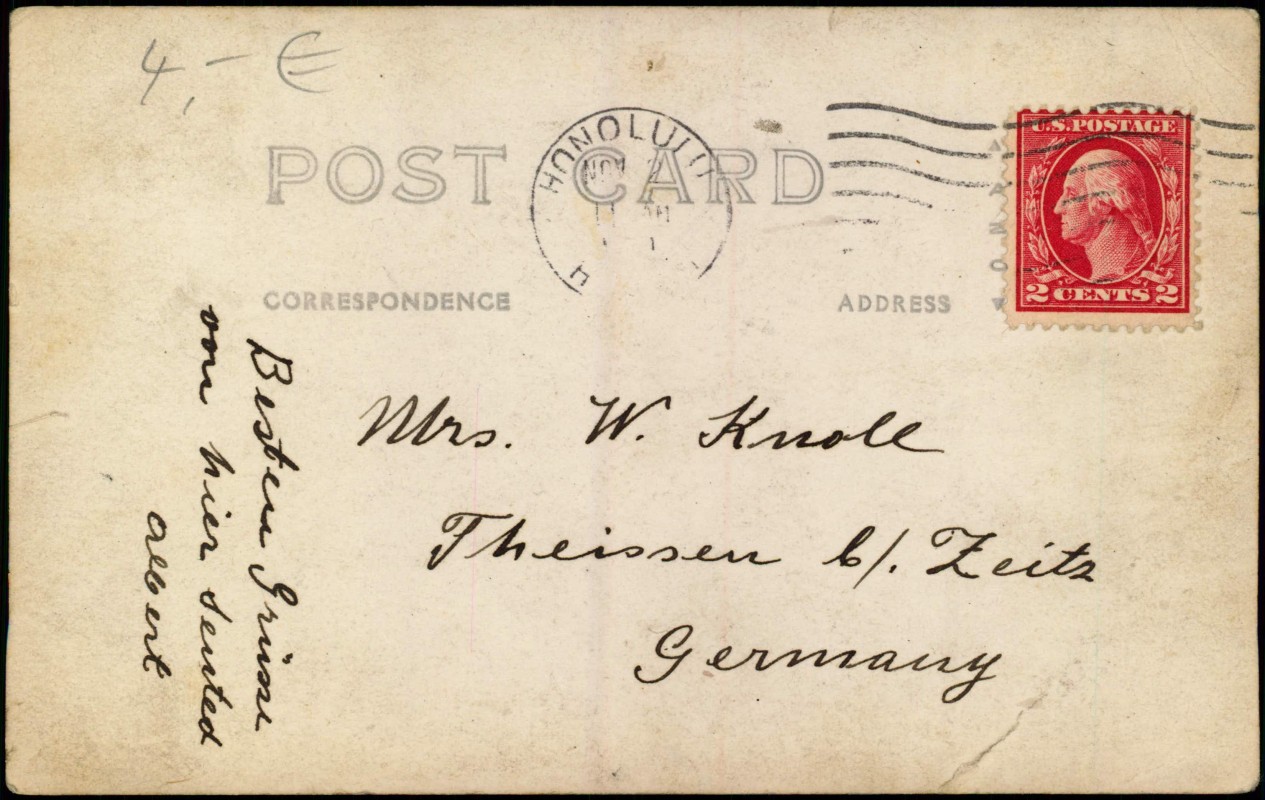 4,- €
POST CARD
HONOLULU
NOV 2
11 AM
H
U.S. POSTAGE
2 CENTS 2
CORRESPONDENCE
ADDRESS
Besten Grüsse
von hier sented
Albert
Mrs. W. Knoll
Theissen b/. Zeitz
Germany